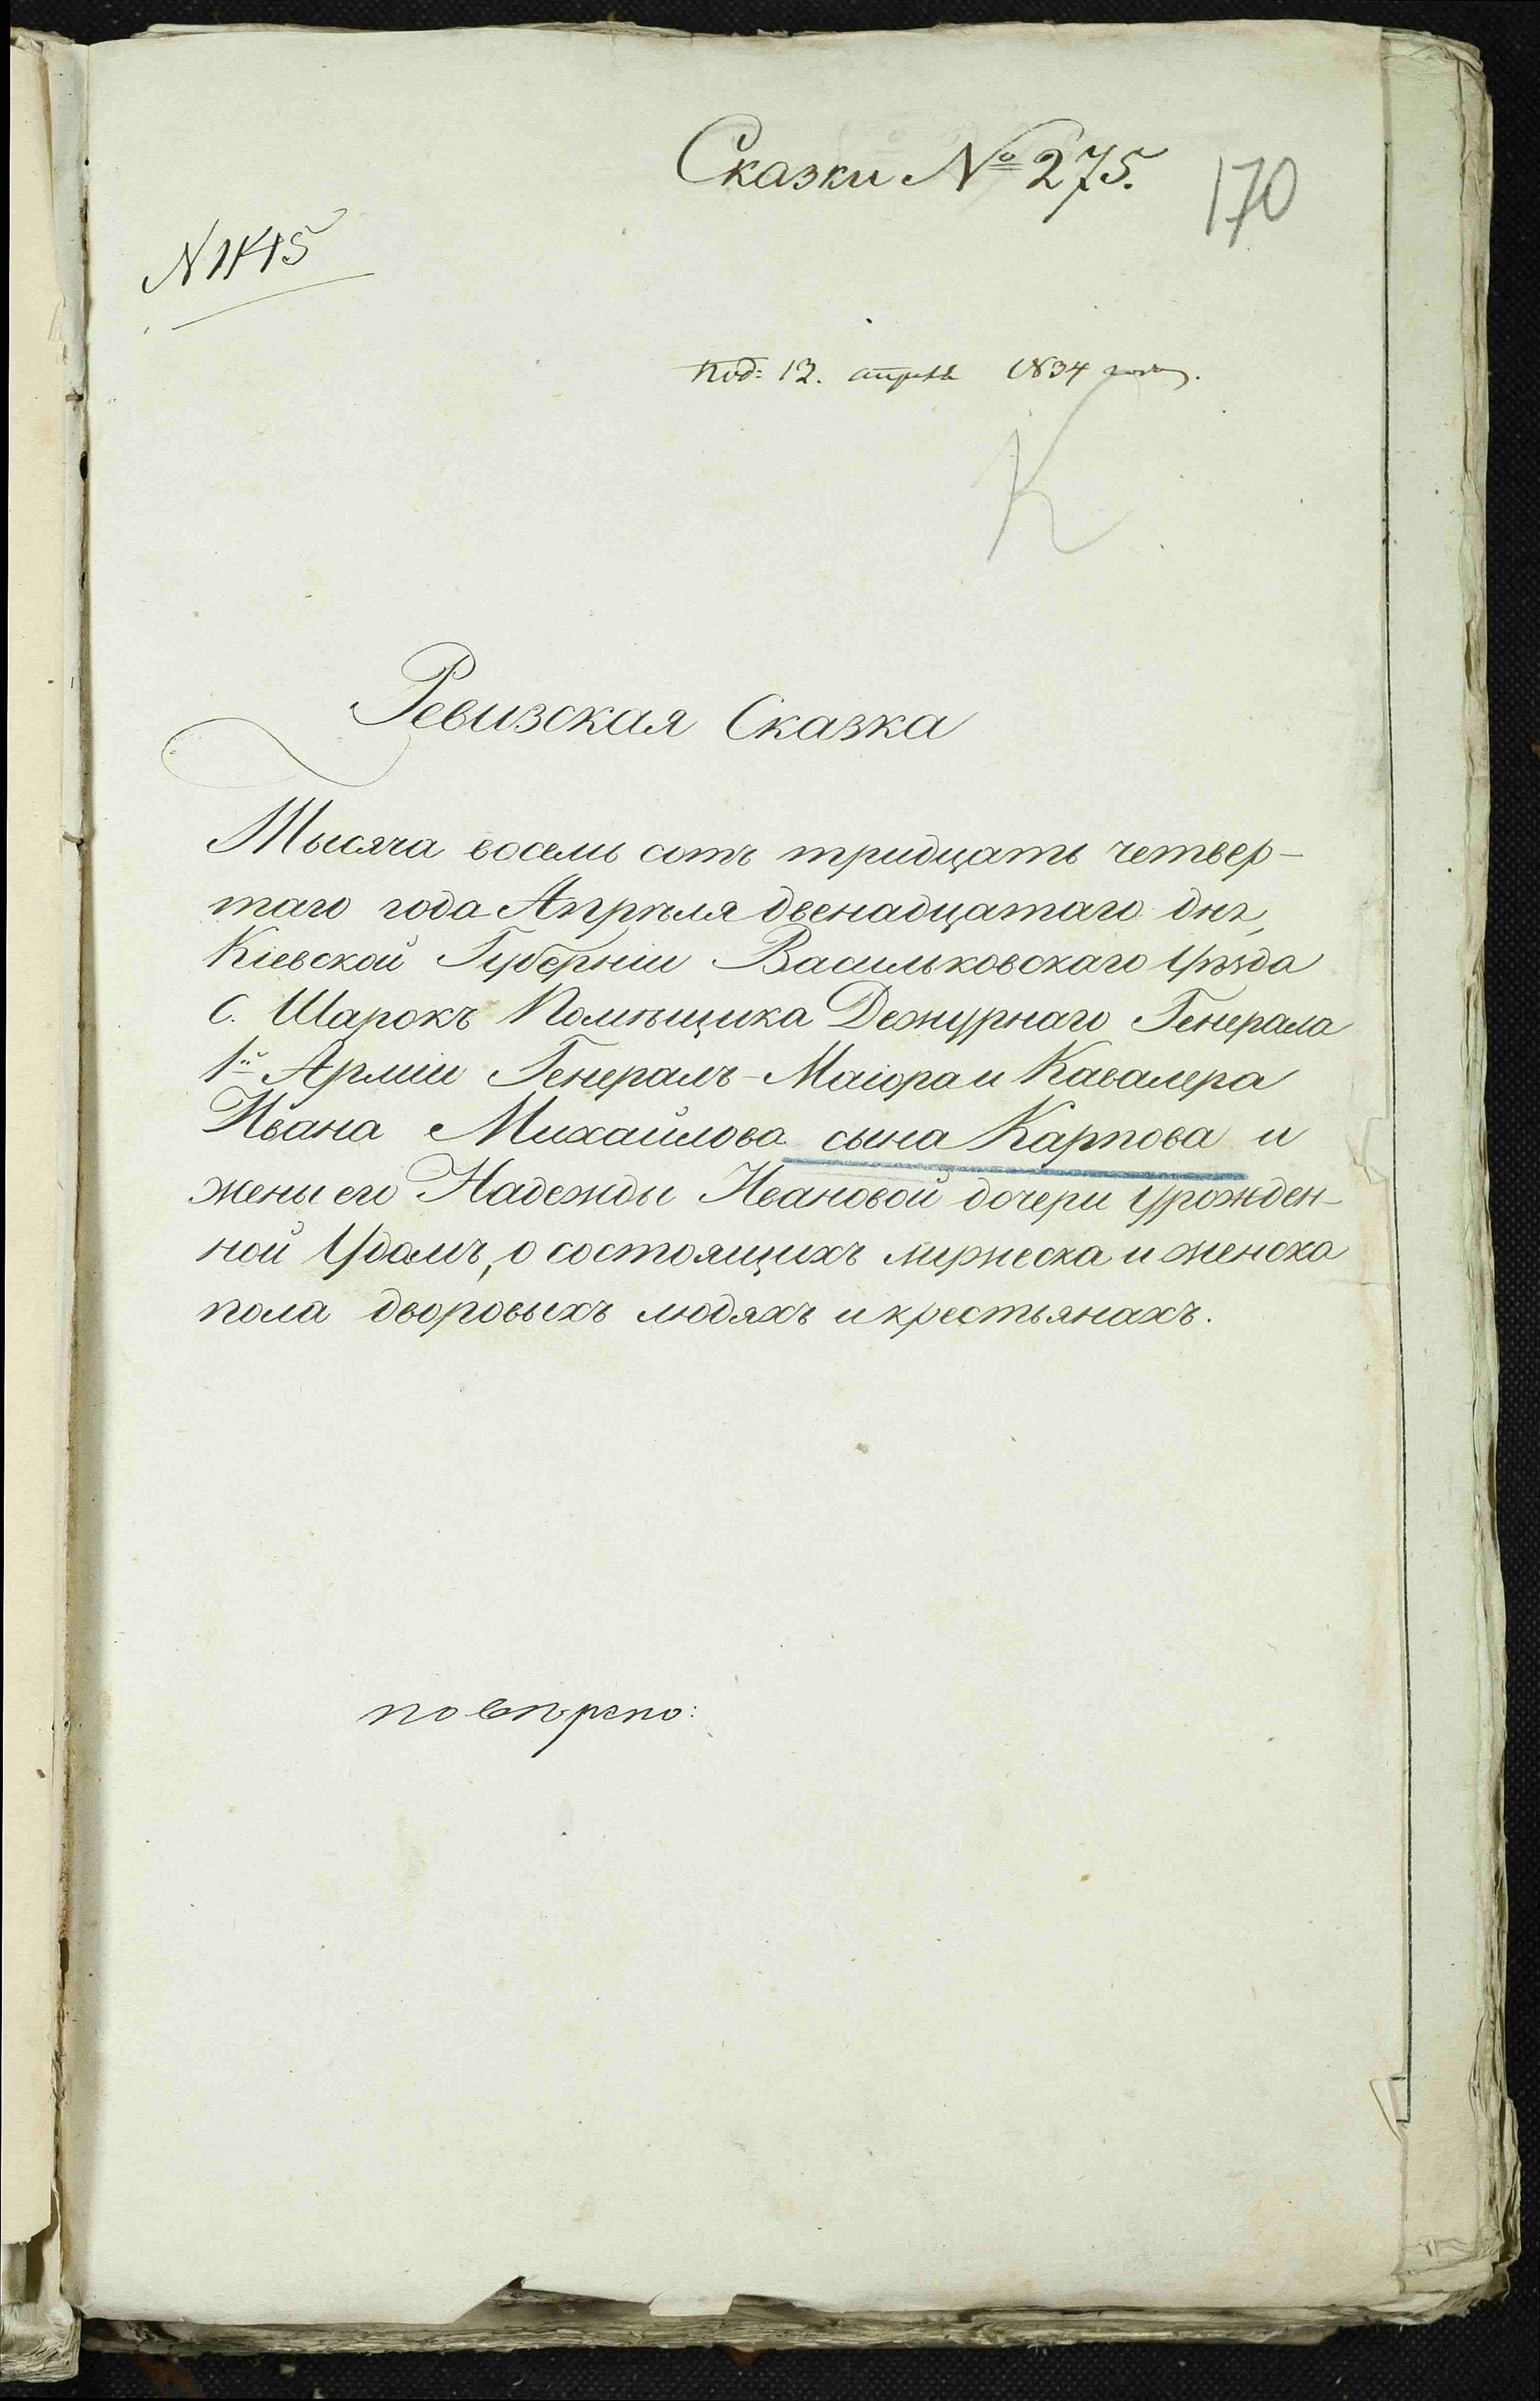 Сказки № 275.
170
N 1415
под: 12. апреля 1834 года.
К
Ревизская Сказка
Тысяча восемь сотъ тридцать четвер-
таго года Апрѣля двенадцатаго дня,
Кіевской Губерніи Васильковскаго Уѣзда
С. Шарокъ Помѣщика Дежурнаго Генерала
1й Арміи Генералъ-Маіора и Кавалера
Ивана Михайлова сына Карпова и
жены его Надежды Ивановой дочери Урожден-
ной Удомъ, о состоящихъ мужеска и женска
пола дворовыхъ людяхъ и крестьянахъ.
повѣрено: